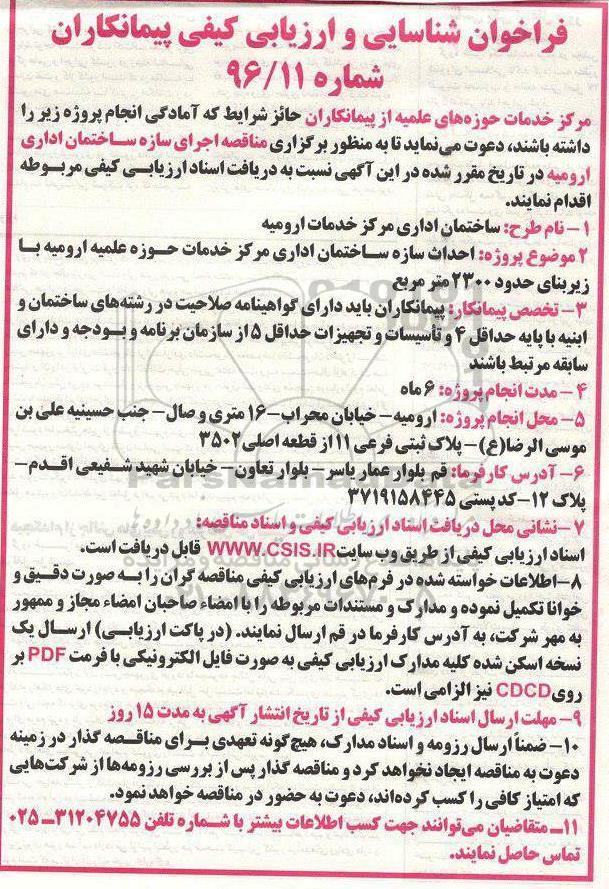 فراخوان شناسایی و ارزیابی کیفی پیمانکاران
شماره ۹۶/۱۱
مرکز خدمات حوزه‌های علمیه از پیمانکاران حائز شرایط که آمادگی انجام پروژه زیر را
داشته باشند، دعوت می‌نماید تا به منظور برگزاری مناقصه اجرای سازه ساختمان اداری
ارومیه در تاریخ مقرر شده در این آگهی نسبت به دریافت اسناد ارزیابی کیفی مربوطه
اقدام نمایند.
۱- نام طرح: ساختمان اداری مرکز خدمات ارومیه
۲ موضوع پروژه: احداث سازه ساختمان اداری مرکز خدمات حوزه علمیه ارومیه با
زیربنای حدود ۲۳۰۰ متر مربع
۳- تخصص پیمانکار: پیمانکاران باید دارای گواهینامه صلاحیت در رشته‌های ساختمان و
ابنیه با پایه حداقل ۴ و تأسیسات و تجهیزات حداقل ۵ از سازمان برنامه و بودجه و دارای
سابقه مرتبط باشند
۴- مدت انجام پروژه: ۶ ماه
۵- محل انجام پروژه: ارومیه- خیابان محراب-۱۶ متری و صال- جنب حسینیه علی بن
موسی الرضا(ع)- پلاک ثبتی فرعی ۱۱ از قطعه اصلی ۳۵۰۲
۶- آدرس کارفرما: قم بلوار عمار یاسر- بلوار تعاون- خیابان شهید شفیعی اقدم-
پلاک ۱۲-کد پستی ۳۷۱۹۱۵۸۴۴۵
۷-نشانی محل دریافت اسناد ارزیابی کیفی و اسناد مناقصه:
اسناد ارزیابی کیفی از طریق وب سایت WWW.CSIS.IR قابل دریافت است.
۸-اطلاعات خواسته شده در فرم‌های ارزیابی کیفی مناقصه گران را به صورت دقیق و
خوانا تکمیل نموده و مدارک و مستندات مربوطه را با امضاء صاحبان امضاء مجاز و ممهور
به مهر شرکت، به آدرس کارفرما در قم ارسال نمایند. (در پاکت ارزیابی) ارسال یک
نسخه اسکن شده کلیه مدارک ارزیابی کیفی به صورت فایل الکترونیکی با فرمت PDF بر
روی CDCD نیز الزامی است.
۹- مهلت ارسال اسناد ارزیابی کیفی از تاریخ انتشار آگهی به مدت ۱۵ روز
۱۰- ضمناً ارسال رزومه و اسناد مدارک، هیچ‌گونه تعهدی برای مناقصه گذار در زمینه
دعوت به مناقصه ایجاد نخواهد کرد و مناقصه گذار پس از بررسی رزومه‌ها از شرکت‌هایی
که امتیاز کافی را کسب کرده‌اند، دعوت به حضور در مناقصه خواهد نمود.
۱۱- متقاضیان می‌توانند جهت کسب اطلاعات بیشتر با شماره تلفن ۳۱۲۰۴۷۵۵-۰۲۵
تماس حاصل نمایند.